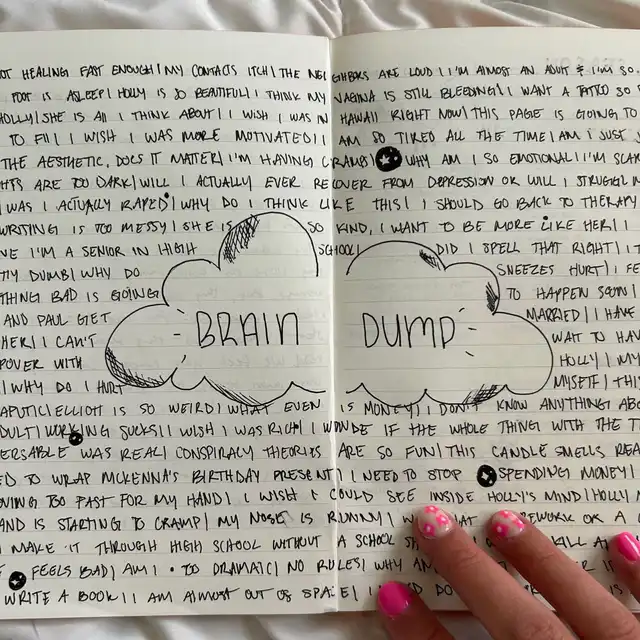 OT HEALING FAST ENOUGH | MY CONTACTS ITCH | THE NEIGHBORS ARE LOUD | I'M ALMOST AN ADULT & I'M SO
FOOT IS ASLEEP | HOLLY IS SO BEAUTIFUL | I THINK MY VAGINA IS STILL BLEEDING | I WANT A TATTOO SO
HOLLY | SHE IS All I THINK ABOUT | I WISH I WAS IN HAWAII RIGHT NOW | THIS PAGE IS GOING TO
TO FILL | I WISH I WAS MORE MOTIVATED | I AM SO TIRED ALL THE TIME | AM I JUST
THE AESTHETIC, DOES IT MATTER | I'M HAVING CRAMPS | WHY AM I SO EMOTIONAL | I'M
HTS ARE TOO DARK | WILL I ACTUALLY EVER RECOVER FROM DEPRESSION OR WILL I STRUGGLE
WAS I ACTUALLY RAPED | WHY DO I THINK LIKE THIS | I SHOULD GO BACK TO THERAPY
WRITING IS TOO MESSY | SHE IS SO KIND, I WANT TO BE MORE LIKE HER | I
VE I'M A SENIOR IN HIGH SCHOOL | DID I SPELL THAT RIGHT | I
TTY DUMB | WHY DO SNEEZES HURT | I FE
THING BAD IS GOING TO HAPPEN SOON |
AND PAUL GET MARRIED | I HAVE
HER | I CAN'T BRAIN DUMP WAIT TO HAV
POVER WITH HOLLY | MY
| WHY DO I HURT MYSELF | THI
APUTIC | ELLIOTT IS SO WEIRD | WHAT EVEN IS MONEY | I DON'T KNOW ANYTHING ABO
DULT | WORKING SUCKS | I WISH I WAS RICH | I WONDE IF THE WHOLE THING WITH THE T
ERSABLE WAS REAL | CONSPIRACY THEORIES ARE SO FUN | THIS CANDLE SMELLS REA
ED TO WRAP MCKENNA'S BIRTHDAY PRESENT | I NEED TO STOP SPENDING MONEY |
OVING TOO FAST FOR MY HAND | I WISH I COULD SEE INSIDE HOLLY'S MIND | HOLLY
AND IS STARTING TO CRAMP | MY NOSE IS RUNNY | HAT EWORK OR A
MAKE IT THROUGH HIGH SCHOOL WITHOUT A SCHOOL KILL
FEELS BAD | AM I TO DRAMATIC | NO RULES | WHY
WRITE A BOOK | I AM ALMOST OUT OF SPACE | DO